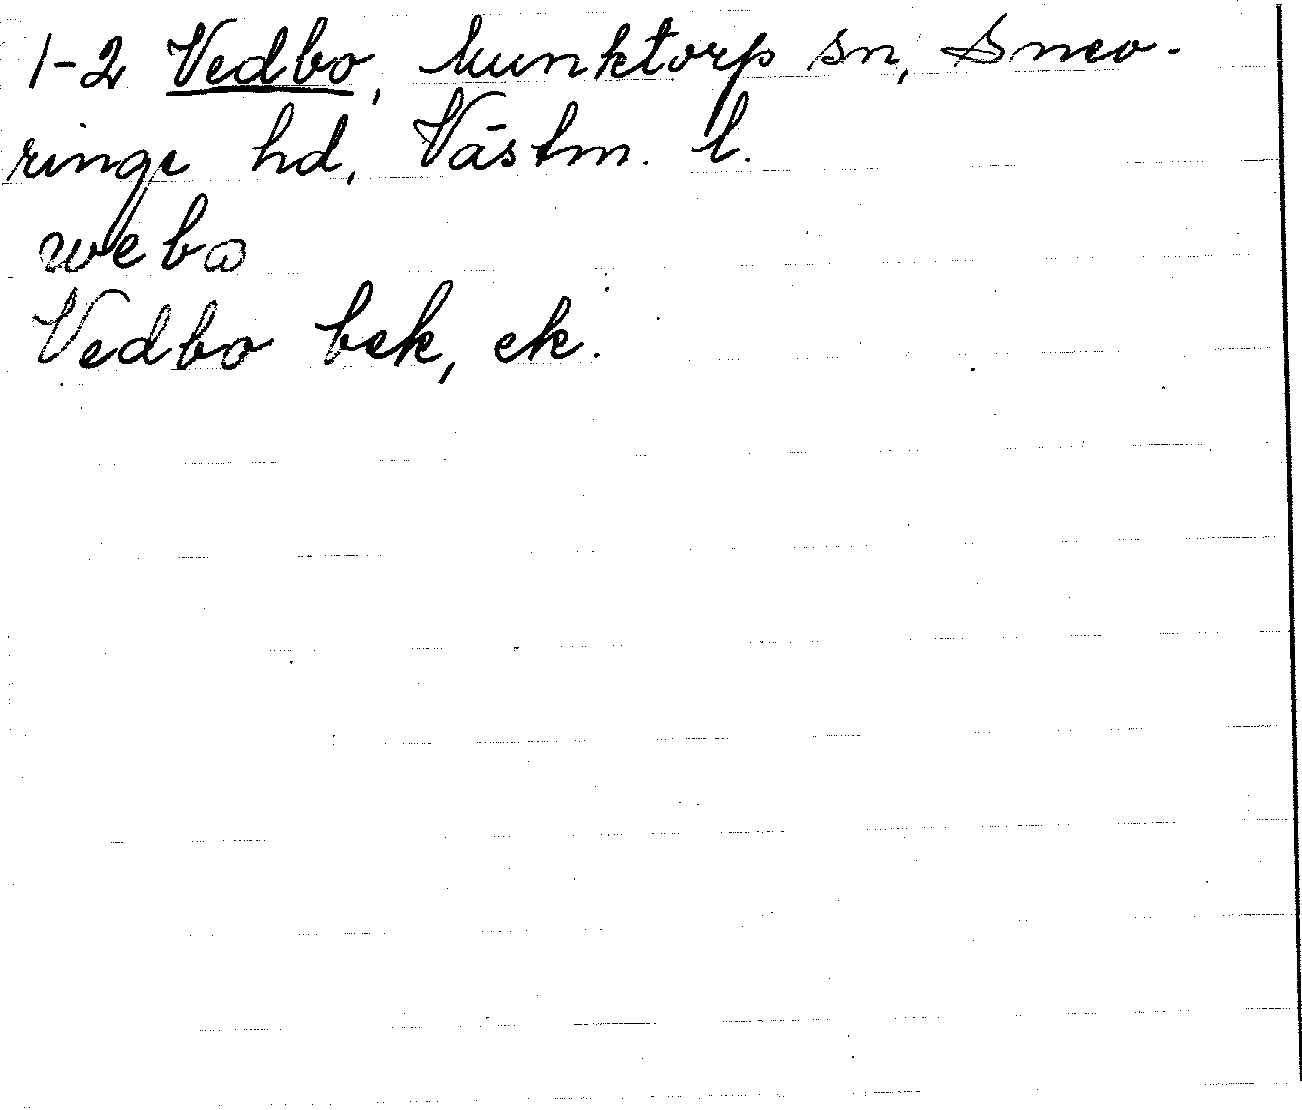 1-2 Vedbo, Munktorp sn, Snev-
ringe hd. Västm. l.
Vedbo bek, ek.